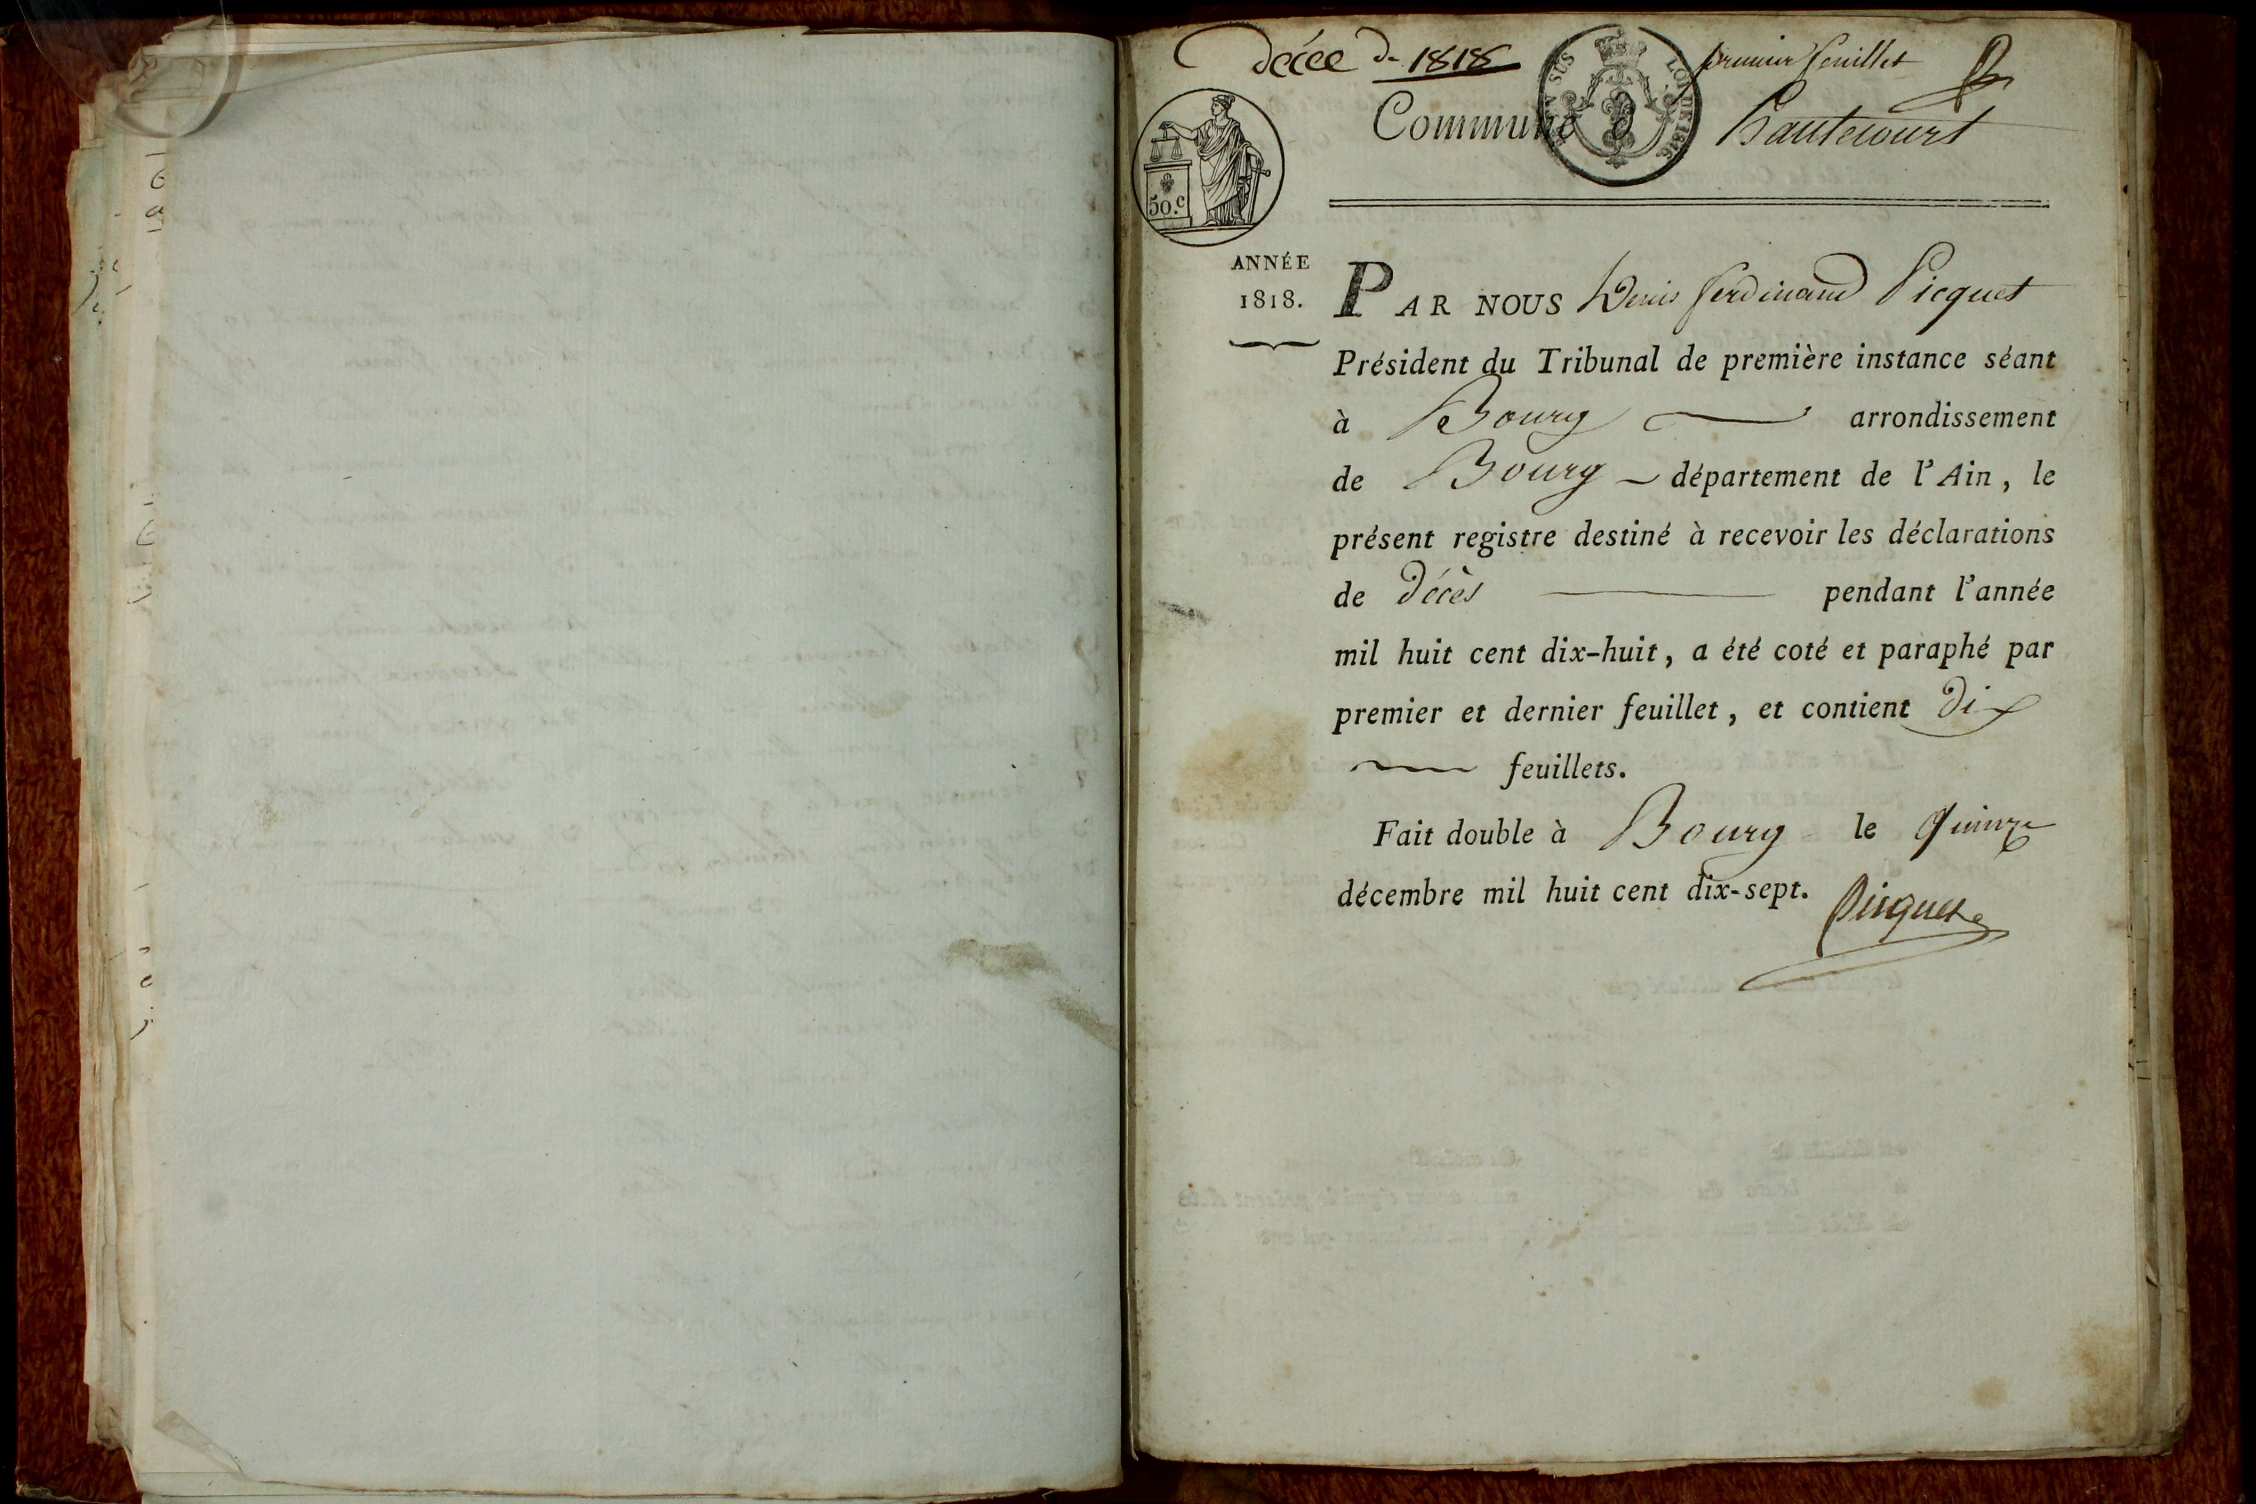 décee de 1818
premier feuillet
EN SUS
LOI DE 1816.
Commune d hautecourt
50.c
ANNÉE
1818.
PAR NOUS Denis ferdinand Picquet
Président du Tribunal de première instance séant
à Bourg arrondissement
de Bourg département de l'Ain, le
présent registre destiné à recevoir les déclarations
de décès pendant l'année
mil huit cent dix-huit, a été coté et paraphé par
premier et dernier feuillet, et contient dix
feuillets.
Fait double à Bourg le quinze
décembre mil huit cent dix-sept.
Picquet